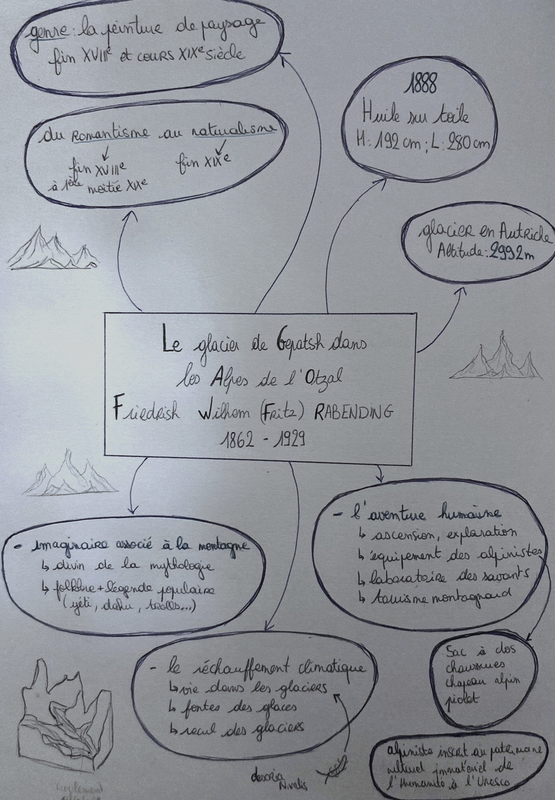 genre : la peinture de paysage
fin XVIIIe et cours XIXe siècle
1888
Huile sur toile
H : 192 cm ; L : 280 cm
du Romantisme au naturalisme
fin XVIIIe
à 1ère moitié XIXe
fin XIXe
glacier en Autriche
Altitude : 2992m
Le glacier de Gepatsh dans
les Alpes de l'Otzal
Friedrish Wilhem (Fritz) RABENDING
1862 - 1929
- imaginaire associé à la montagne
↳ divin de la mythologie
↳ folklore + légende populaire
(yéti, dahu, trolls...)
- l'aventure humaine
↳ ascension, exploration
↳ équipement des alpinistes
↳ laboratoire des savants
↳ tourisme montagnard
- le réchauffement climatique
↳ vie dans les glaciers
↳ fontes des glaces
↳ recul des glaciers
Sac à dos
chaussures
chapeau alpin
piolet
desoria
Nivalis
alpiniste inscrit au patrimoine
culturel immatériel de
l'Humanité à l'Unesco